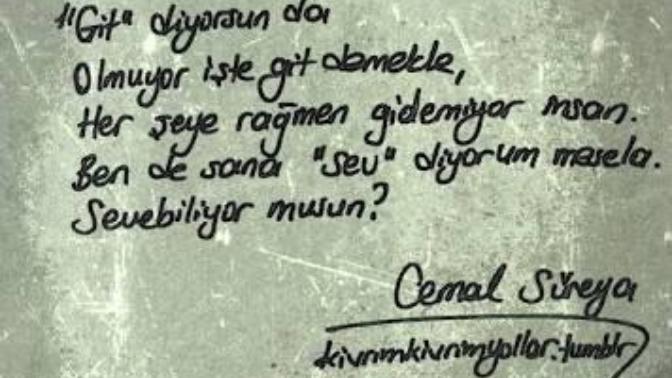 "Git" diyorsun da
Olmuyor işte git demekle,
Her şeye rağmen gidemiyor insan.
Ben de sana "sev" diyorum mesela.
Sevebiliyor musun?
Cemal Süreya
kivrimkivrimyollar.tumblr